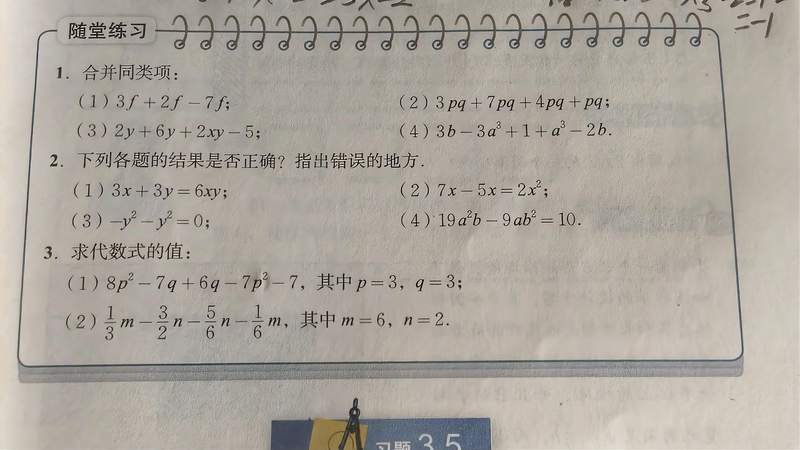 =-1
随堂练习
1. 合并同类项：
(1) 3f+2f-7f； (2) 3pq+7pq+4pq+pq；
(3) 2y+6y+2xy-5； (4) 3b-3a³+1+a³-2b.
2. 下列各题的结果是否正确？指出错误的地方.
(1) 3x+3y=6xy； (2) 7x-5x=2x²；
(3) -y²-y²=0； (4) 19a²b-9ab²=10.
3. 求代数式的值：
(1) 8p²-7q+6q-7p²-7，其中 p=3，q=3；
(2) 1/3 m - 3/2 n - 5/6 n - 1/6 m，其中 m=6，n=2.
习题 3.5